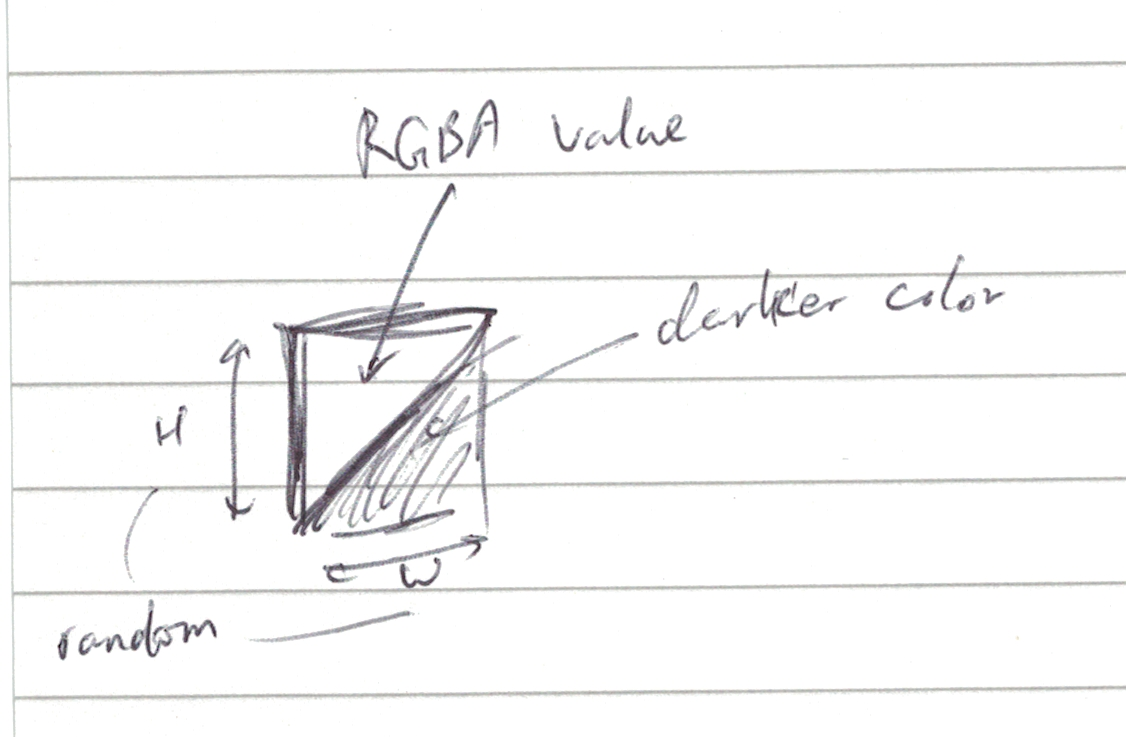 RGBA value
darker color
H
W
random